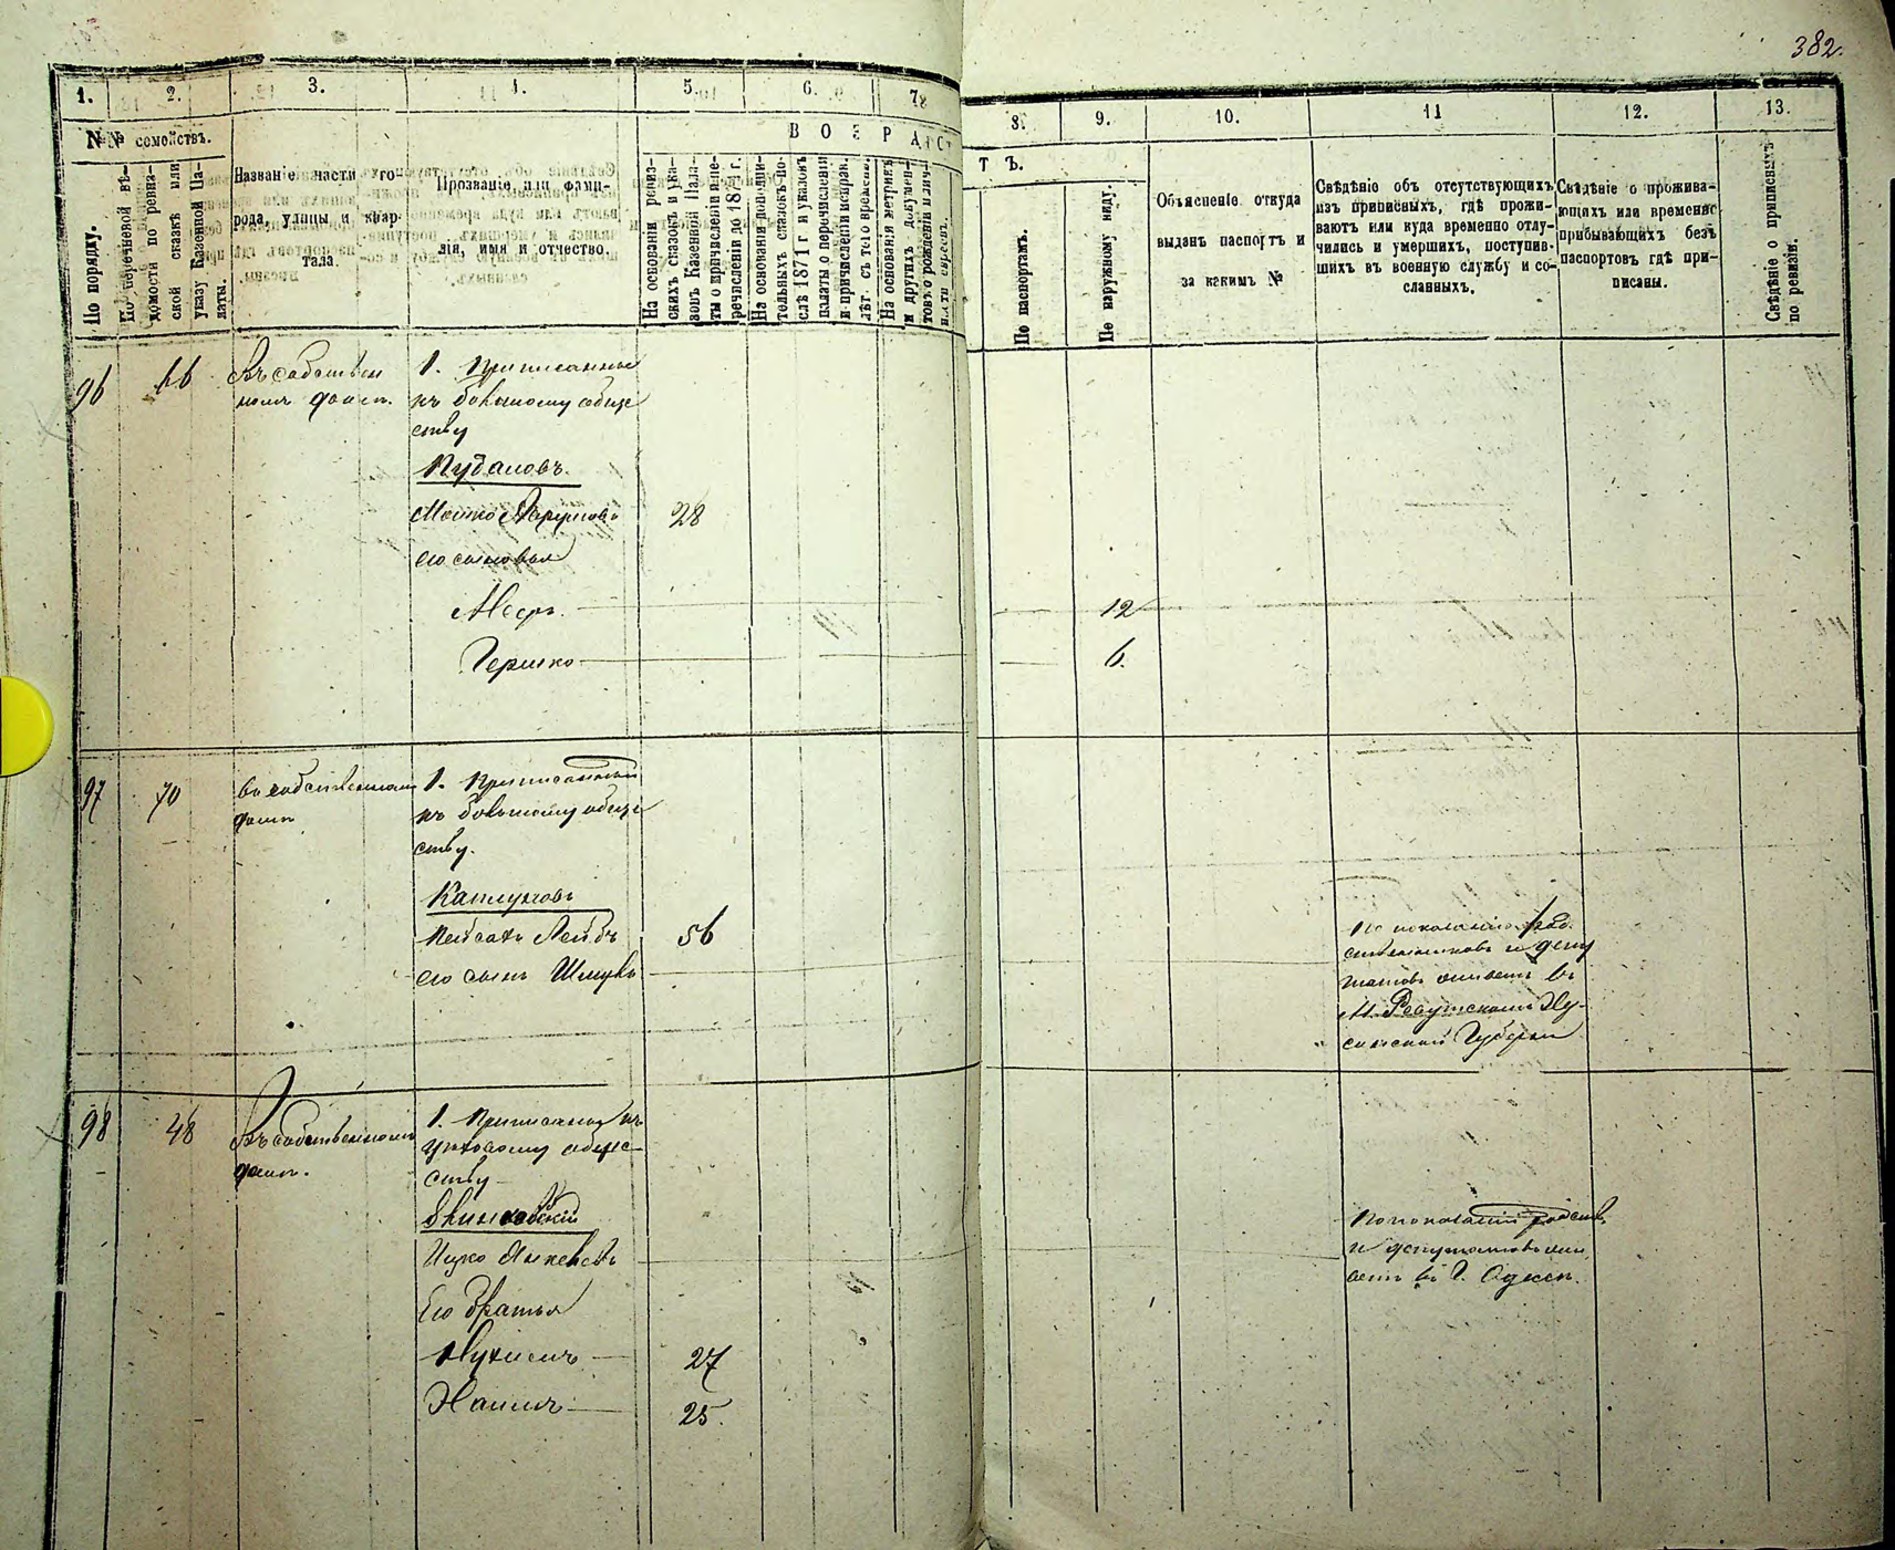 382.
1. 2. 3. 4. 5. 6. 7. 8. 9. 10. 11 12. 13.
№№ семействъ.
По порядку.
По перечневой вѣ-
домости по ревиз-
ской сказкѣ или
указу Казенной Па-
латы.
Названіе части го-
рода, улицы и квар-
тала.
Прозваніе или фами-
лія, имя и отчество.
ВОЗРАСТЪ.
На основаніи ревиз-
скихъ сказокъ и ука-
зовъ Казенной Пала-
ты о причисленіи и пе-
речисленіи до 1874 г.
На основаніи дополни-
тельныхъ сказокъ по-
слѣ 1871 г и указовъ
палаты о перечисленіи
и причисленіи исправ.
лѣт. съ того времени.
На основаніи метрикъ
и другихъ докумен-
товъ о рожденіи и
По паспортамъ.
По наружному виду.
Объясненіе откуда
выданъ паспортъ и
за какимъ №
Свѣдѣніе объ отсутствующихъ
изъ приписныхъ, гдѣ прожи-
ваютъ или куда временно отлу-
чились и умершихъ, поступив-
шихъ въ военную службу и со-
сланныхъ.
Свѣдѣніе о прожива-
ющихъ или временно
прибывающихъ безъ
паспортовъ гдѣ при-
писаны.
Свѣдѣніе о приписныхъ
по ревизіи.
96 66 Въ собствен
номъ домѣ.
1. Приписанные
къ обще
ству
Кудановъ
Мошко 28
его сыновья
Мееръ. 12
Гершко 6.
97 70 въ собственномъ
домѣ
1. Приписанный
къ обще
ству.
Пейсахъ Лейбъ 56
его сынъ Шмуль
По показанію род.
ственниковъ и депу
татовъ живетъ въ
М.
Губерніи
98 48 Въ собственномъ
домѣ.
1. Приписанъ къ
обще-
ству
Ицко
Его братья
Нухимъ 27
Хаимъ 25.
По показанію родств.
и депутатовъ жи
ветъ въ Г. Одессѣ.